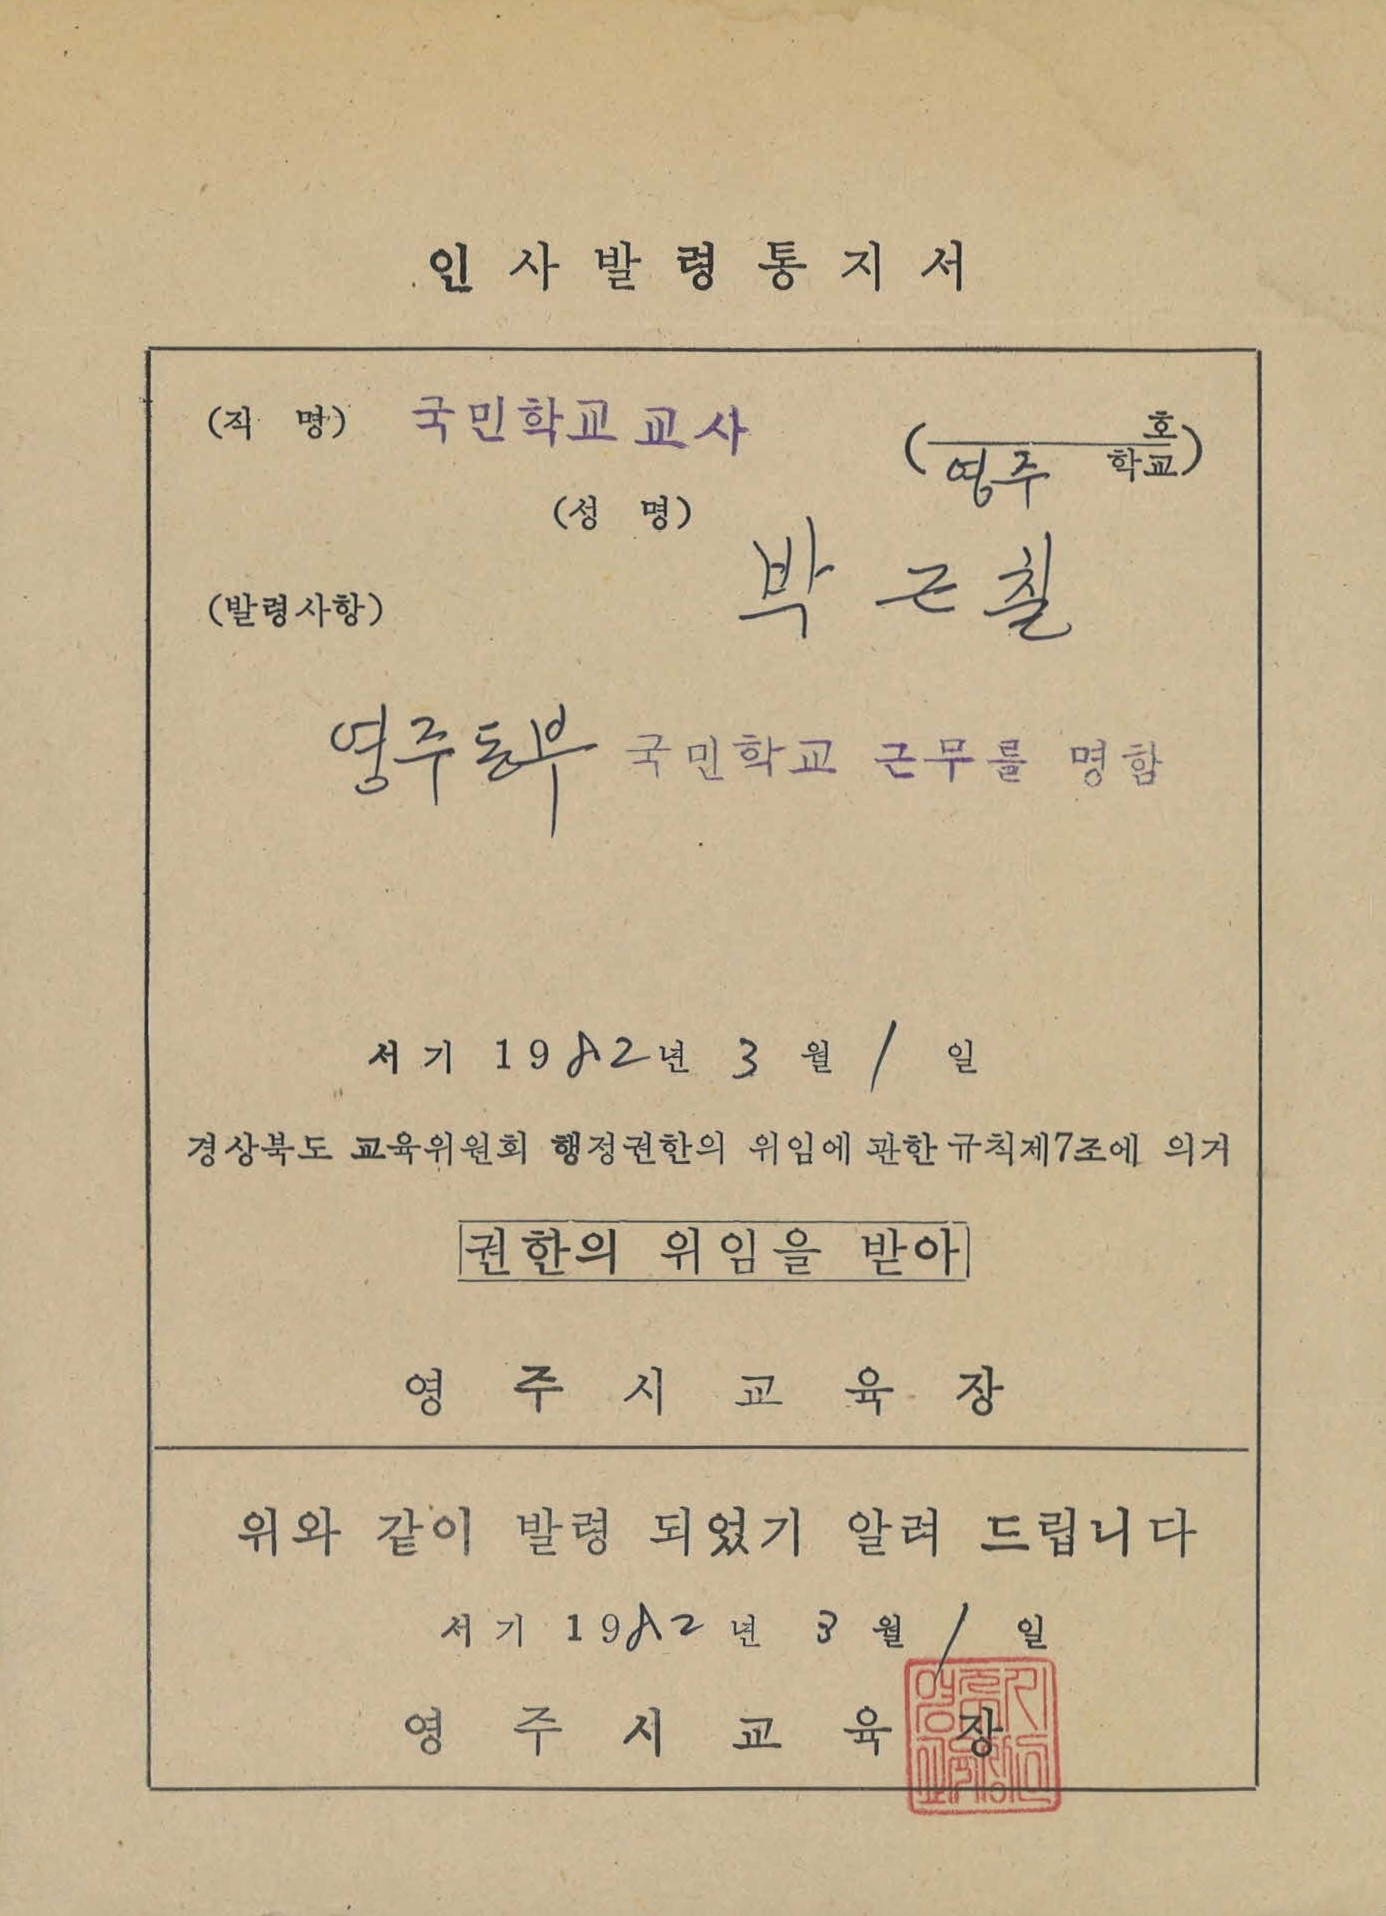 인사발령통지서
(직 명) 국민학교 교사 ( 호
영주 학교)
(성 명)
박근칠
(발령사항)
영주동부 국민학교 근무를 명함
서기 1982년 3월 1일
경상북도 교육위원회 행정권한의 위임에 관한 규칙제7조에 의거
권한의 위임을 받아
영주시교육장
위와 같이 발령 되었기 알려 드립니다
서기 1982년 3월 1일
영주시교육장